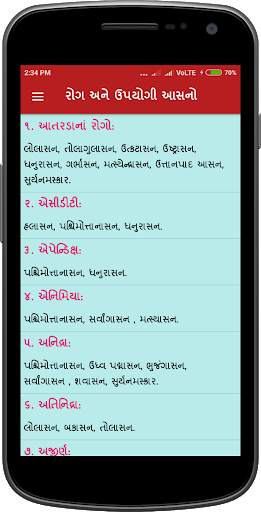 2:34 PM VoLTE 70%
રોગ અને ઉપયોગી આસનો
૧. આતરડાનાં રોગો:
લોલાસન, તોલાગુલાસન, ઉત્કટાસન, ઉષ્ટ્રાસન,
ધનુરાસન, ગર્ભાસન, મત્સ્યેન્દ્રાસન, ઉત્તાનપાદ આસન,
સુર્યનમસ્કાર.
૨. એસીડીટી:
હલાસન, પશ્ચિમોત્તાનાસન, ધનુરાસન.
૩. એપેન્ડિક્ષ:
પશ્ચિમોત્તાનાસન, ધનુરાસન.
૪. એનિમિયા:
પશ્ચિમોત્તાનાસન, સર્વાંગાસન , મત્સ્યાસન.
૫. અનિદ્રા:
પશ્ચિમોત્તાનાસન, ઉધ્વ પદ્માસન, ભુજંગાસન,
સર્વાંગાસન , શવાસન, સુર્યનમસ્કાર.
૬. અતિનિદ્રા:
લોલાસન, બકાસન, તોલાસન.
૭. અજીર્ણ: